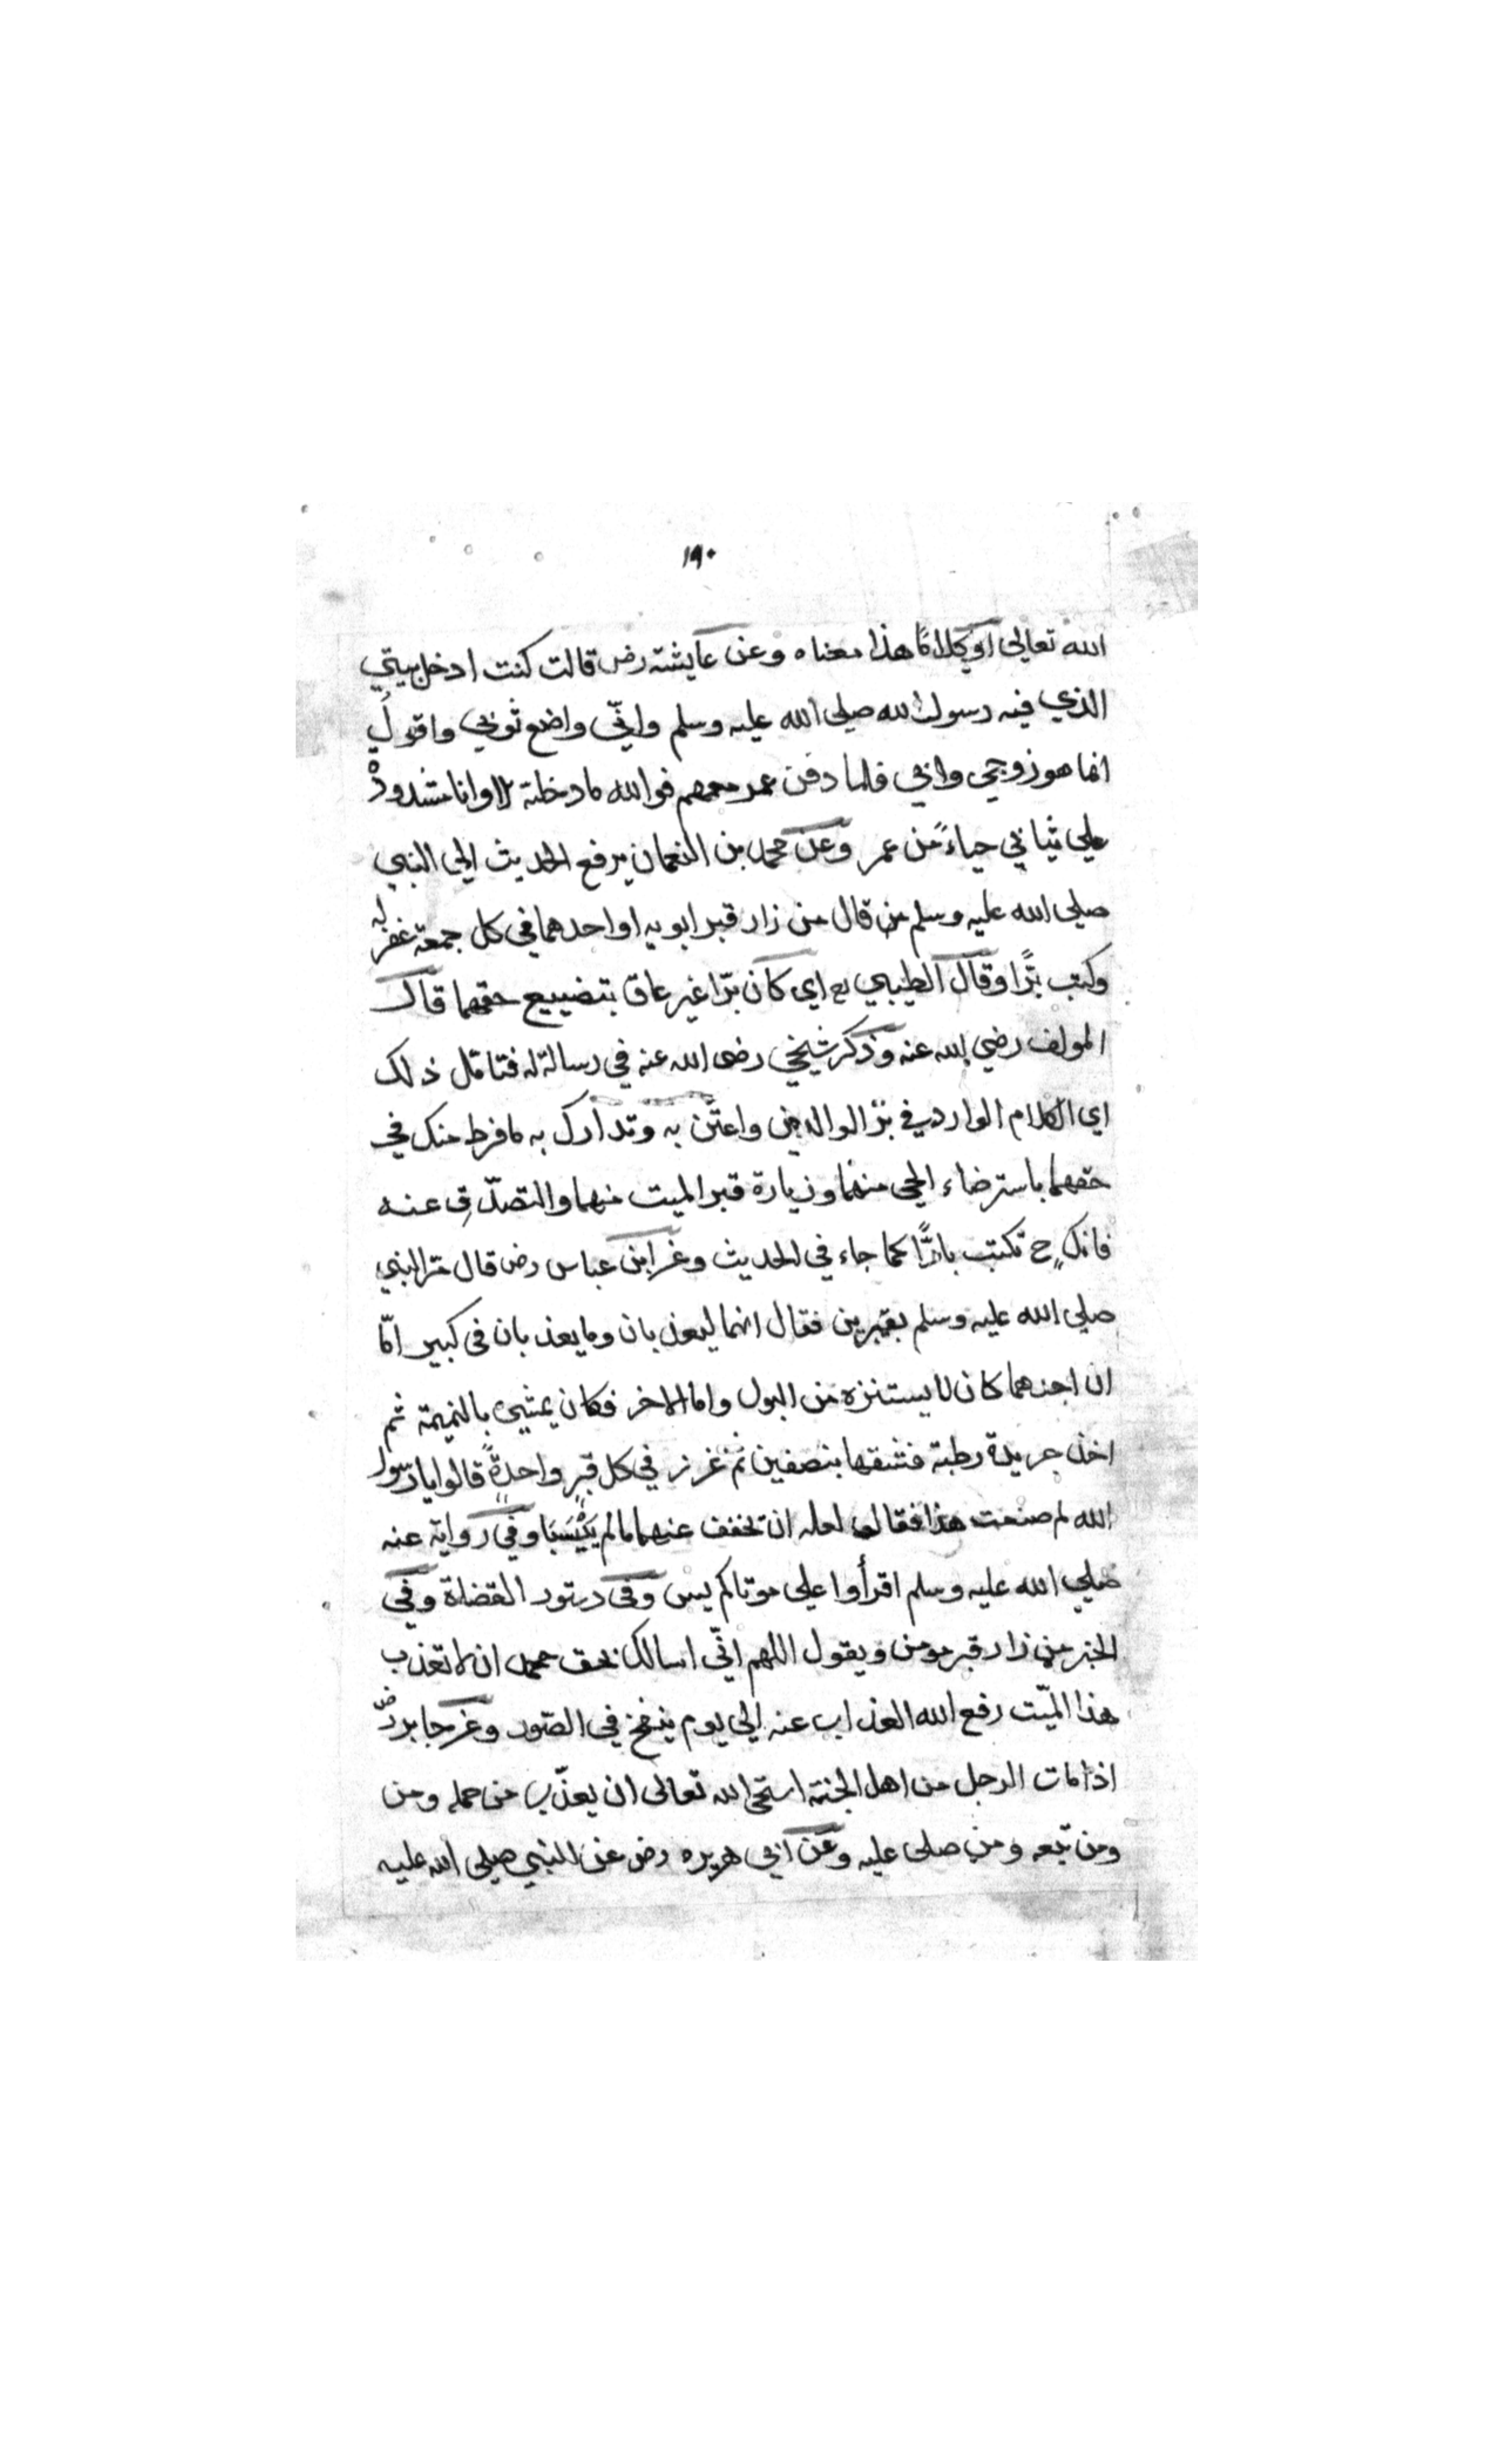 ١٩٠
الله تعالى او كلاما هذا معناه وعن عايشة رض قالت كنت ادخل بيتي
الذي فيه رسول الله صلى الله عليه وسلم وانّي واضع ثوبي واقول
انما هو زوجي وابي فلما دفن عمر معهم فوالله ما دخلته الا وانا مشدودة
علي ثيابي حياءً من عمر وعن محمد بن النعمان يرفع الحديث الى النبي
صلى الله عليه وسلم من قال من زار قبر ابويه او احدهما في كل جمعة غفر له
وكتب برًّا وقال الطيبي رح اي كان برّا غير عاق بتضييع حقهما قال
المولف رضي الله عنه وذكر شيخي رضى الله عنه في رسالة له فتامّل ذلك
اي الكلام الوارد في برّ الوالدين واعتن به وتدارك به ما فرط منك في
حقهما باسترضاء الحي منهما وزيارة قبر الميت منهما والتصدّق عنه
فانك ح تكتب بارًّا كما جاء في الحديث وعن ابن عباس رض قال مرّ النبي
صلى الله عليه وسلم بقبرين فقال انهما ليعذبان وما يعذبان في كبير امّا
ان احدهما كان لا يستنزه من البول واما الاخر فكان يمشي بالنميمة ثم
اخذ جريدة رطبة فشقها بنصفين ثم غرز في كل قبر واحدةً قالوا يا رسول
الله لم صنعت هذا فقال لعله ان تخفف عنهما ما لم ييبسا وفي رواية عنه
صلى الله عليه وسلم اقرأوا على موتاكم يس وفي دستور القضاة وفي
الخبر من زار قبر مومن ويقول اللهم انّي اسالك بحق محمد ان لا تعذب
هذا الميّت رفع الله العذاب عنه الى يوم ينفخ في الصّور وعن جابر رض
اذا مات الرجل من اهل الجنة استحى الله تعالى ان يعذّب من حمله ومن
ومن تبعه ومن صلى عليه وعن ابي هريره رض عن النبي صلى الله عليه